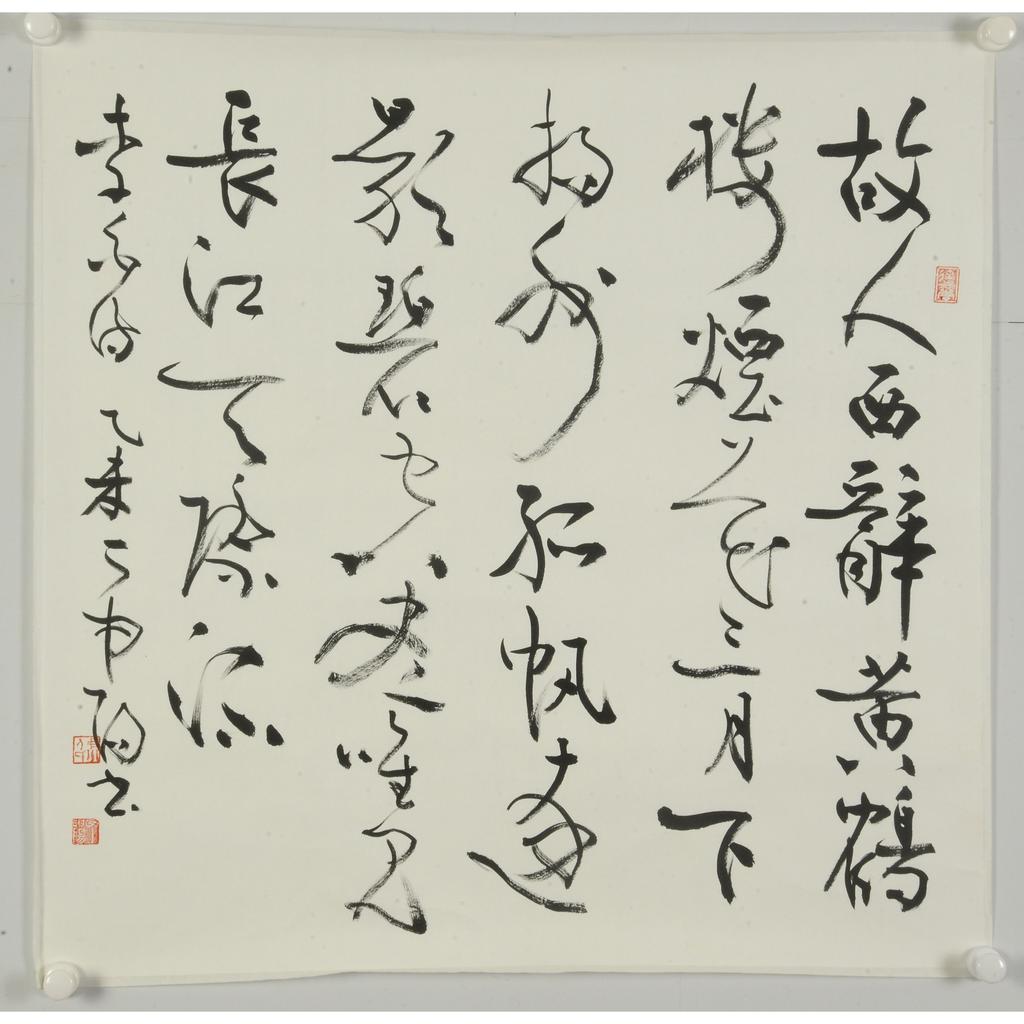 故人西辭黄鶴
樓煙花三月下
揚州孤帆遠
影碧空盡唯見
長江天際流
李白詩 乙未 書